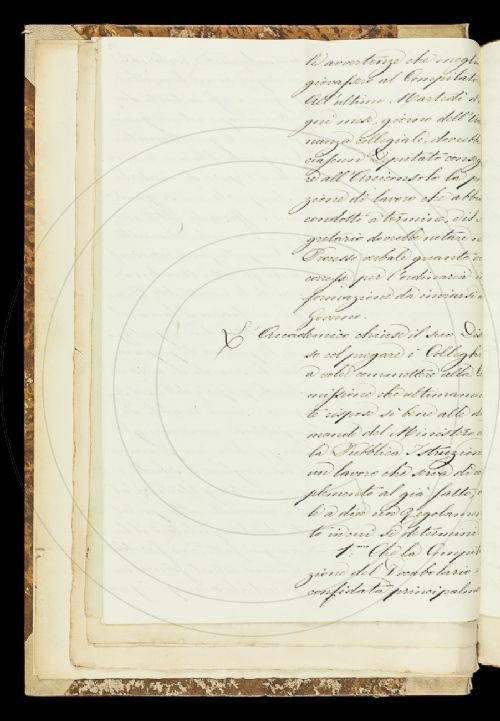 le avvertenze che megli
giovassero al Compilato
All'ultimo Martedì d'o
gni mese, giorno dell'Adu
nanza collegiale, dovrebb
ciascun Deputato conseg
re all'Arciconsolo la po
zione di lavoro che abbia
condotto a termine, e il S
gretario dovrebbe notare n
Processo verbale quanto oc
corresse per l'ordinaria in
formazione da inviarsi a
Governo.
L'Accademico chiuse il suo Dis
so col pregare i Colleghi
a voler commettere alla Com
missione che ultimamen
te rispose sì bene alle do
mande del Ministero del
la Pubblica Istruzione
un lavoro che serva di com
plemento al già fatto,
le a dire un Regolamen
to in cui si determini
1.° Che la Compila
zione del Vocabolario
confidata principalme